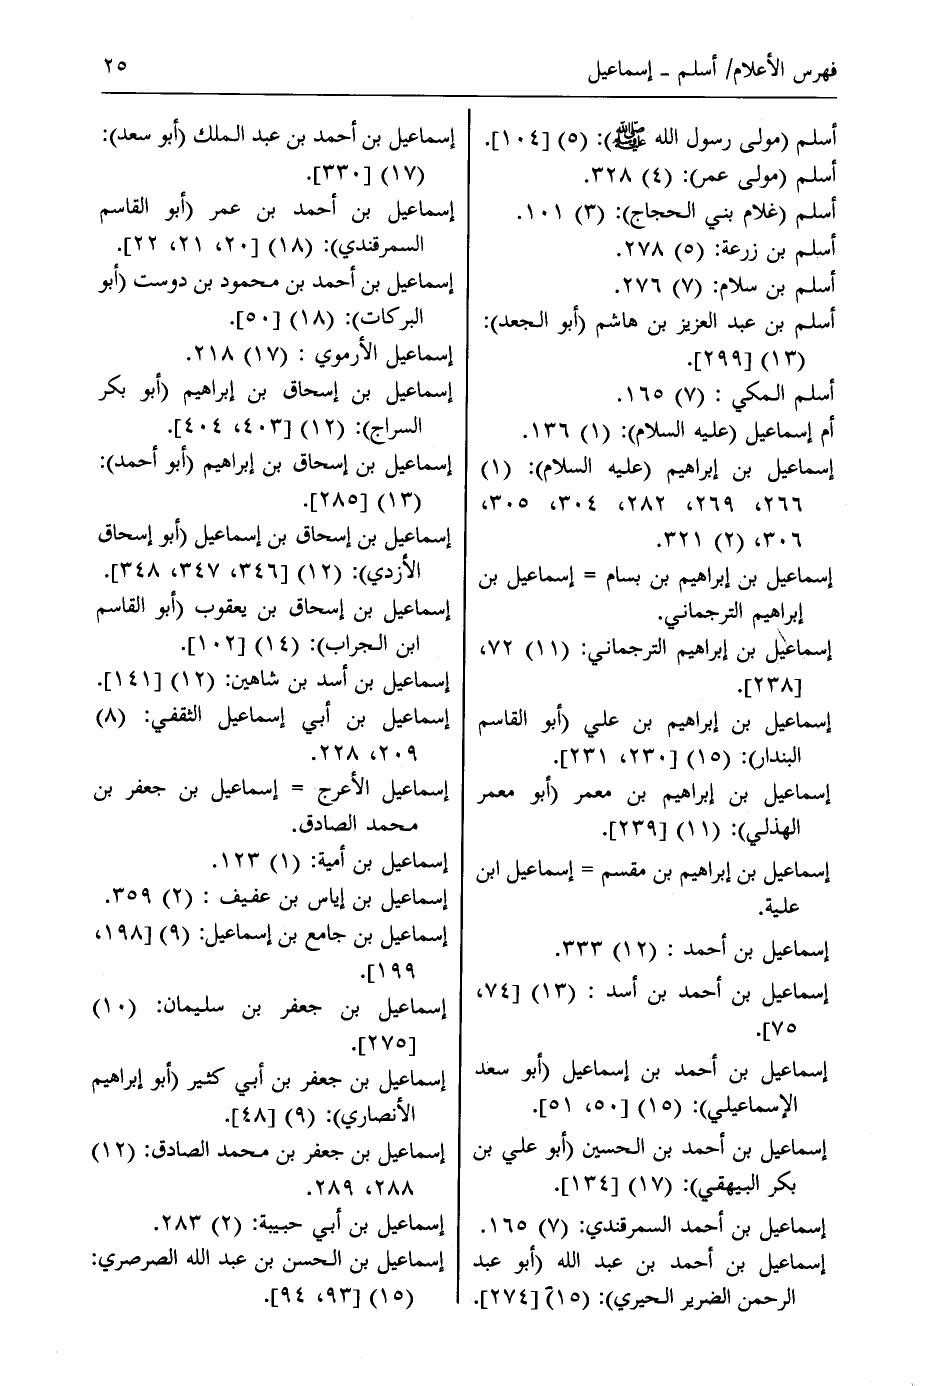 فهرس الأعلام/ أسلم ـ إسماعيل
٢٥
أسلم (مولى رسول الله ﷺ): (٥) [١٠٤].
أسلم (مولى عمر): (٤) ٣٢٨.
أسلم (غلام بني الحجاج): (٣) ١٠١.
أسلم بن زرعة: (٥) ٢٧٨.
أسلم بن سلام: (٧) ٢٧٦.
أسلم بن عبد العزيز بن هاشم (أبو الجعد):
(١٣) [٢٩٩].
أسلم المكي : (٧) ١٦٥.
أم إسماعيل (عليه السلام): (١) ١٣٦.
إسماعيل بن إبراهيم (عليه السلام): (١)
٢٦٦، ٢٦٩، ٢٨٢، ٣٠٤، ٣٠٥،
٣٠٦، (٢) ٣٢١.
إسماعيل بن إبراهيم بن بسام = إسماعيل بن
إبراهيم الترجماني.
إسماعيل بن إبراهيم الترجماني: (١١) ٧٢،
[٢٣٨].
إسماعيل بن إبراهيم بن علي (أبو القاسم
البندار): (١٥) [٢٣٠، ٢٣١].
إسماعيل بن إبراهيم بن معمر (أبو معمر
الهذلي): (١١) [٢٣٩].
إسماعيل بن إبراهيم بن مقسم = إسماعيل ابن
علية.
إسماعيل بن أحمد : (١٢) ٣٣٣.
إسماعيل بن أحمد بن أسد : (١٣) [٧٤،
٧٥].
إسماعيل بن أحمد بن إسماعيل (أبو سعد
الإسماعيلي): (١٥) [٥٠، ٥١].
إسماعيل بن أحمد بن الحسين (أبو علي بن
بكر البيهقي): (١٧) [١٣٤].
إسماعيل بن أحمد السمرقندي: (٧) ١٦٥.
إسماعيل بن أحمد بن عبد الله (أبو عبد
الرحمن الضرير الحيري): (١٥) [٢٧٤].
إسماعيل بن أحمد بن عبد الملك (أبو سعد):
(١٧) [٣٣٠].
إسماعيل بن أحمد بن عمر (أبو القاسم
السمرقندي): (١٨) [٢٠، ٢١، ٢٢].
إسماعيل بن أحمد بن محمود بن دوست (أبو
البركات): (١٨) [٥٠].
إسماعيل الأرموي : (١٧) ٢١٨.
إسماعيل بن إسحاق بن إبراهيم (أبو بكر
السراج): (١٢) [٤٠٣، ٤٠٤].
إسماعيل بن إسحاق بن إبراهيم (أبو أحمد):
(١٣) [٢٨٥].
إسماعيل بن إسحاق بن إسماعيل (أبو إسحاق
الأزدي): (١٢) [٣٤٦، ٣٤٧، ٣٤٨].
إسماعيل بن إسحاق بن يعقوب (أبو القاسم
ابن الجراب): (١٤) [١٠٢].
إسماعيل بن أسد بن شاهين: (١٢) [١٤١].
إسماعيل بن أبي إسماعيل الثقفي: (٨)
٢٠٩، ٢٢٨.
إسماعيل الأعرج = إسماعيل بن جعفر بن
محمد الصادق.
إسماعيل بن أمية: (١) ١٢٣.
إسماعيل بن إياس بن عفيف : (٢) ٣٥٩.
إسماعيل بن جامع بن إسماعيل: (٩) [١٩٨،
١٩٩].
إسماعيل بن جعفر بن سليمان: (١٠)
[٢٧٥].
إسماعيل بن جعفر بن أبي كثير (أبو إبراهيم
الأنصاري): (٩) [٤٨].
إسماعيل بن جعفر بن محمد الصادق: (١٢)
٢٨٨، ٢٨٩.
إسماعيل بن أبي حبيبة: (٢) ٢٨٣.
إسماعيل بن الحسن بن عبد الله الصرصري:
(١٥) [٩٣، ٩٤].